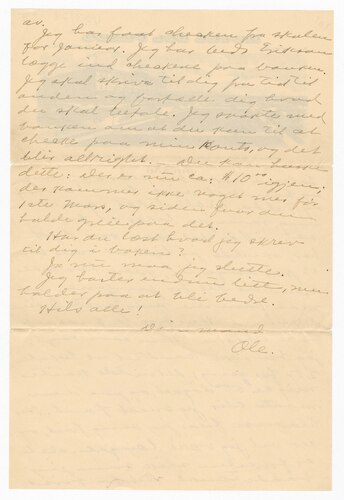 av.
Jeg har faat checken fra skolen
for Januar. Jeg har bedt Erikson
lægge ind checkene paa banken.
Jeg skal skrive til dig fra tid til
anden og fortælle dig hvad
du skal betale. Jeg snakte med
banken om at du kan til at
checke paa min konto, og det
blir allright. – Du kan huske
dette: Der er nu ca. $10.00 igjen;
der kommer ikke noget mer før
1ste Mars, og siden faar du
holde greie paa det.
Har du læst hvad jeg skrev
til dig i boken?
Ja nu maa jeg slutte.
Jeg hoster endnu litt, men
holder paa at bli bedre.
Hils alle!
Din mand
Ole.